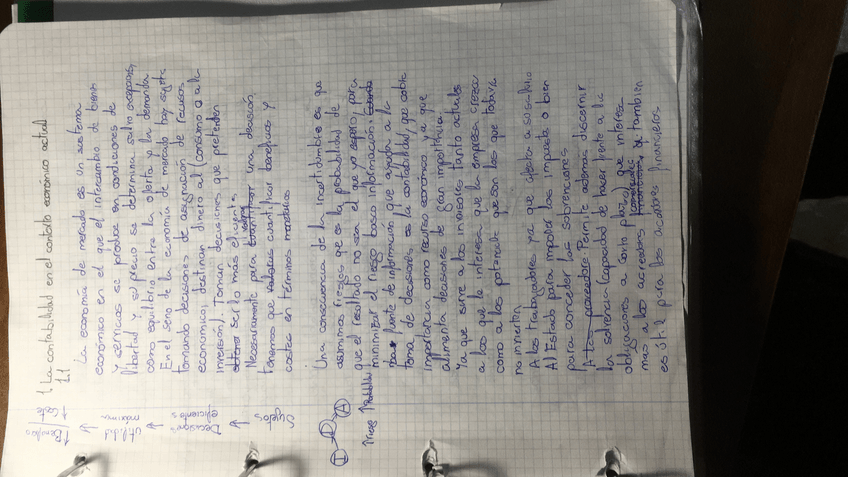 1 La contabilidad en el contexto económico actual
1.1
La economía de mercado es un sistema
económico en el que el intercambio de bienes
y servicios se produce en condiciones de
libertad y su precio se determina, salvo excepciones,
como equilibrio entre la oferta y la demanda
En el seno de la economía de mercado hay sujetos
tomando decisiones de asignación de recursos
económicos, destinan dinero al consumo o a la
inversión. Toman decisiones que pretenden
ser lo más eficientes
Necesariamente para tomar una decisión,
tenemos que cuantificar beneficios y
costes en términos monetarios
Una consecuencia de la incertidumbre es que
asumimos riesgos que es la probabilidad de
que el resultado no sea el que yo espero, para
minimizar el riesgo busco información
fuente de información que ayuda a la
toma de decisiones es la contabilidad, que cobra
importancia como recurso económico ya que
alimenta decisiones de gran importancia
Ya que sirve a los inversores tanto actuales
a los que le interesa que la empresa crezca
como a los potenciales que son los que todavía
no invierten,
A los trabajadores ya que afecta a su salario
Al Estado para imponer los impuestos o bien
para conceder las subvenciones
Permite además discernir
la solvencia (capacidad de hacer frente a las
obligaciones a corto plazo) que interesa
mas a los acreedores comerciales, también
es útil para los acreedores financieros
↑Beneficios ↑Coste
Utilidad máxima
Decisiones eficientes
Sujetos
I D A
↑riesgo ↑Rentabilidad